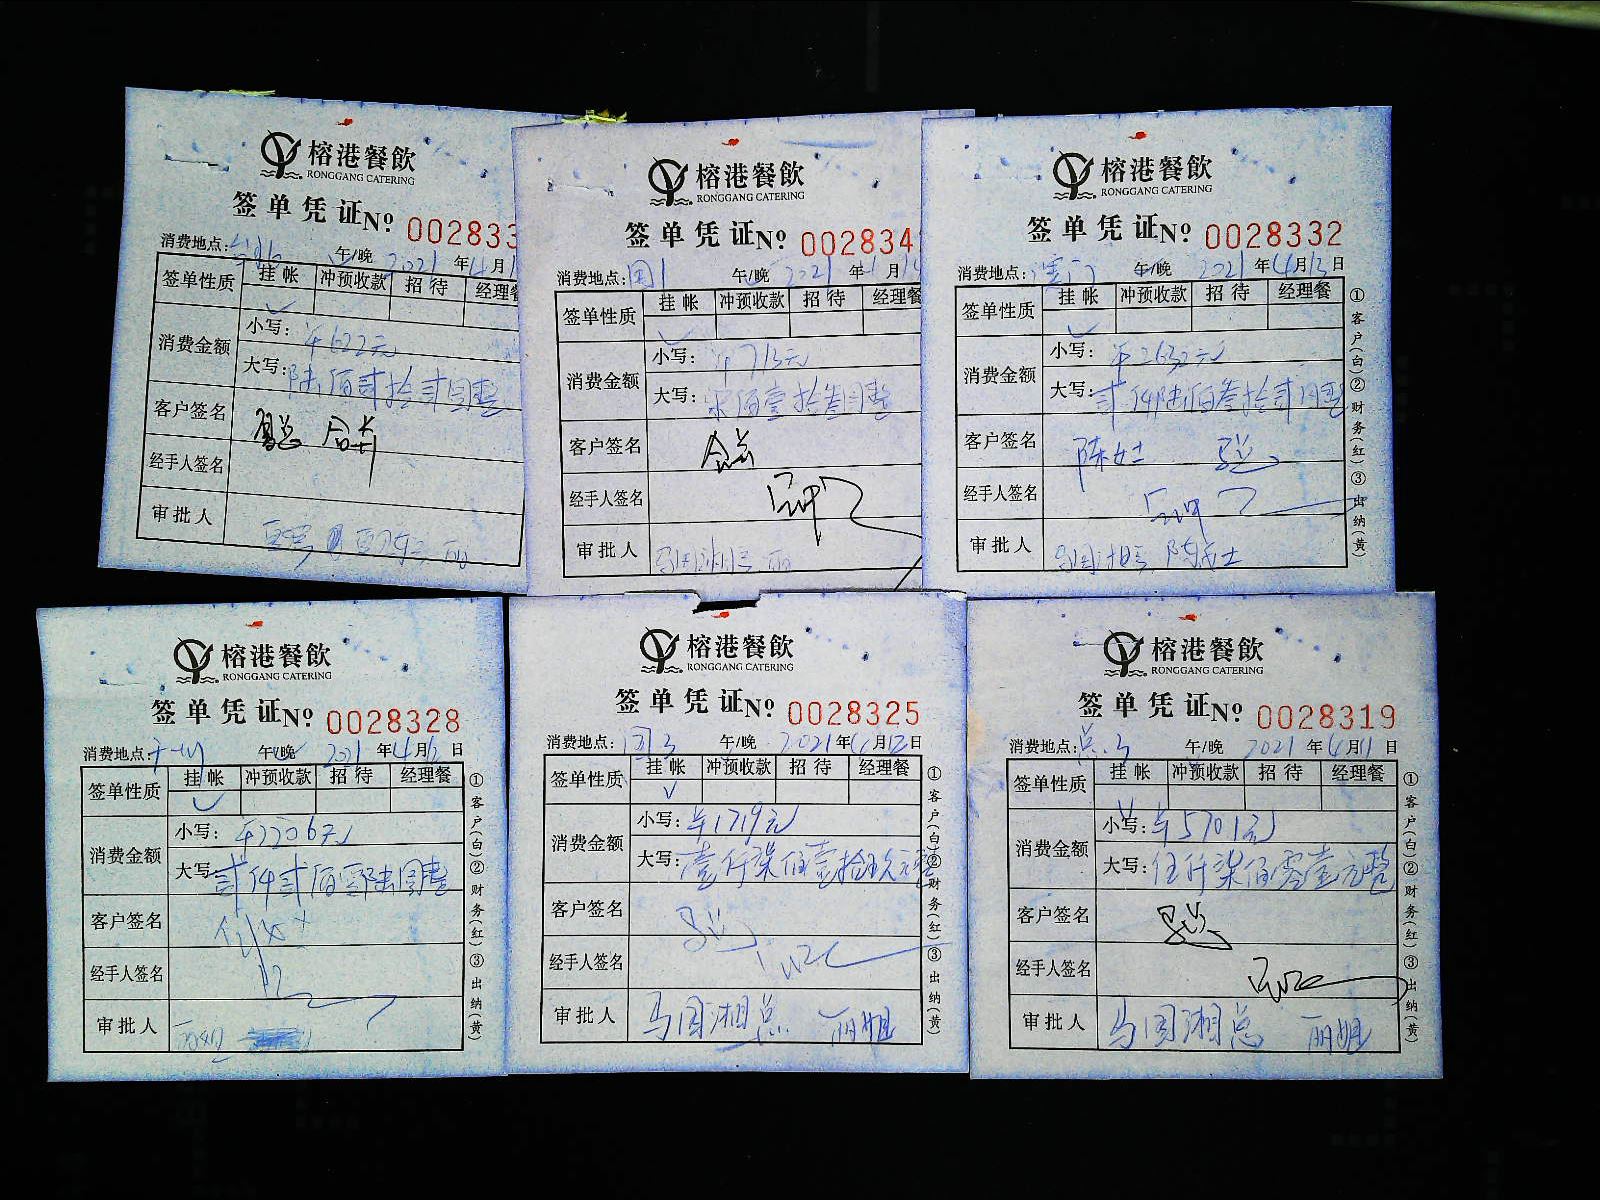 榕港餐飲
RONGGANG CATERING
签单凭证№ 002833
消费地点: 午/晚 2021年4月1
签单性质 挂帐 冲预收款 招待 经理餐
消费金额 小写: ¥622元
大写: 陆佰贰拾贰圆整
客户签名
经手人签名
审批人
榕港餐飲
RONGGANG CATERING
签单凭证№ 002834
消费地点: 午/晚 2021年 月
签单性质 挂帐 冲预收款 招待 经理餐
消费金额 小写: ¥713元
大写: 柒佰壹拾叁圆整
客户签名
经手人签名
审批人 马国湘总 丽
榕港餐飲
RONGGANG CATERING
签单凭证№ 0028332
消费地点: 澳门 午/晚 2021年4月13日
签单性质 挂帐 冲预收款 招待 经理餐
消费金额 小写: ¥2632元
大写: 贰仟陆佰叁拾贰圆整
客户签名
经手人签名
审批人 马国湘总
①客户(白)②财务(红)③出纳(黄)
榕港餐飲
RONGGANG CATERING
签单凭证№ 0028328
消费地点: 广州 午/晚 2021年4月12日
签单性质 挂帐 冲预收款 招待 经理餐
消费金额 小写: ¥2206元
大写: 贰仟贰佰零陆圆整
客户签名
经手人签名
审批人 丽姐
①客户(白)②财务(红)③出纳(黄)
榕港餐飲
RONGGANG CATERING
签单凭证№ 0028325
消费地点: 午/晚 2021年4月12日
签单性质 挂帐 冲预收款 招待 经理餐
消费金额 小写: ¥1719元
大写: 壹仟柒佰壹拾玖元整
客户签名
经手人签名
审批人 马国湘总 丽姐
①客户(白)②财务(红)③出纳(黄)
榕港餐飲
RONGGANG CATERING
签单凭证№ 0028319
消费地点: 午/晚 2021年4月11日
签单性质 挂帐 冲预收款 招待 经理餐
消费金额 小写: ¥5701元
大写: 伍仟柒佰零壹元整
客户签名
经手人签名
审批人 马国湘总 丽姐
①客户(白)②财务(红)③出纳(黄)